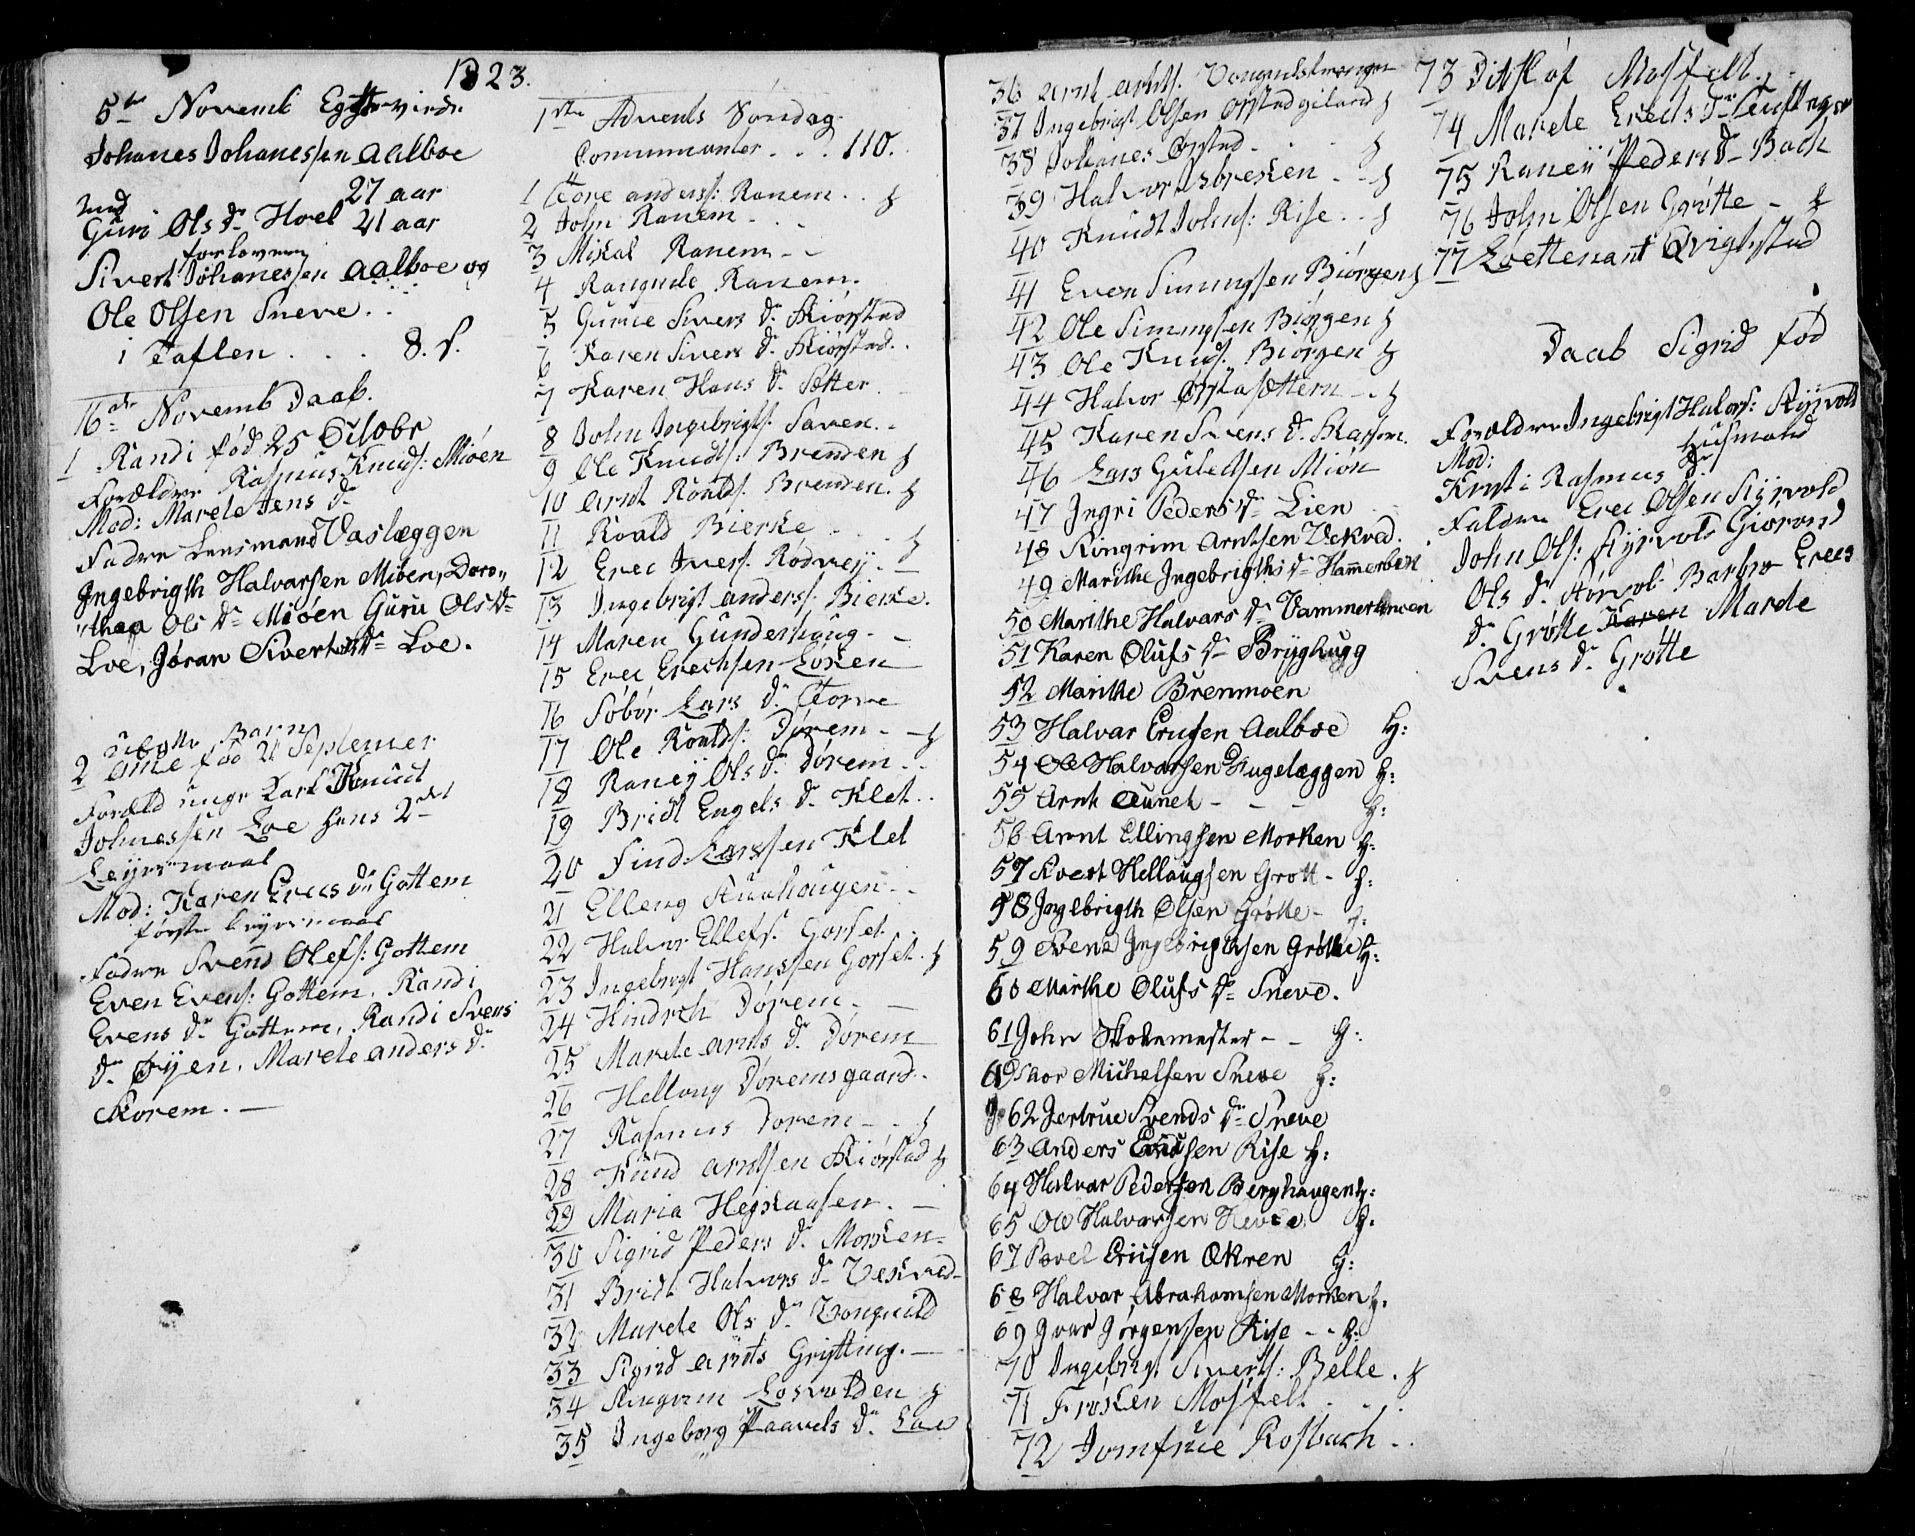 1823.
5te Novemb Egtteviede
Johanes Johanessen Aalboe
27 aar
med
Guri Ols Dr Hoel 21 aar
forlovere
Sivert Johanessen Aalboe og
Ole Olsen Sneve . .
i Taflen . . . 8. s.
16de Novemb Daab.
1 Randi fød 25 Octobr
Forældre Rasmus Knuds: Miøen
Mod: Marele Jens Dr
Fadre Lensmand Vaslæggen
Ingebrigth Halvarsen Miøen, Doro„
„thea Ols Dr Miøen Guru Ols Dr
Loe, Jøran Siverts Dr Loe.
uægte Barn
2 fød 21 Septemer
Foræld unge Karl Knud
Johnessen Loe hans 2det
Leyermaal
Mod: Karen Erecs Dr Gottem
første Leyermaal
Fadre Svend Olefs: Gottem
Even Evens: Gottem, Randi
Evens Dr Gottem, Randi Svens
Dr Øyen, Marele Anders Dr
Skorem. —
1ste Advents Søndag
Communanter . . . 110.
1 Tore Anders: Ranem . . H
2 John Ranem - . .
3 Mikal Ranem - -
4 Rangnele Ranem.
5 Gurue Sivers Dr Kiørstad
6 Karen Sivers Dr Kiørstad . .
7 Karen Hans Dr Sætter
8 John Ingebrigts. Saven . -
9 Ole Knudts: Brenden H
10 Arnt Roalds. Brenden . H
11 Roald Bierke . . .
12 Erec Ivers. Rødvey . — H
13 Ingebrigt Anders: Bierke .
14 Maren Gunderhaug . —
15 Erec Erechsen Løken
16 Søbør Lars Dr Torve
17 Ole Roalds: Dørem - - H
18 Raney Ols Dr Dørem . .
19 Bridt Engels Dr Klet . .
20 Find Larssen Klet
21 Elleng Stuahaugen - -
22 Halvor Ellefs. Gorset
23 Ingebrigt Hanssen Gorset . H
24 Hindrch Dørem . —
25 Marele Arnts Dr Dørem
26 Hellaug Døremsgaard . .
27 Rasmus Dorem - . H
28 Knud Arntsen Kiørstad H
29 Maria Hegslaasen . —
30 Sigrid Peders Dr Morken -
31 Bridt Halvors Dr Vekved -
32 Marele Ols Dr Vongnild
33 Sigrid Arnts Grytting . —
34 Ringrim Losvolden H
35 Ingeborg Paavels Dr Loe
36 Arnt Arnts.
37 Ingebrigt Olsen Ørstadgiland H
38 Johanes Ørstad - . . H
39 Halvor Isbreken - - H
40 Knudt Johns: Rise . . H
41 Even Simingsen Biørgen H
42 Ole Simingsen Biørgen H
43 Ole Knuds. Biørgen H
44 Halvor Ørstasettern - . H
45 Karen Svens Dr
46 Lars Guledsen Miøn
47 Ingri Peders Dr Lien
48 Ringrim Arntsen Vekved .
49 Marithe Ingebrigths Dr Hammerbæk
50 Marithe Halvars Dr Vammerkmoen
51 Karen Olufs Dr Bryghugg
52 Marithe Brenmoen
53 Halvar Ericsen Aalboe H:
54 Ole Halvarsen Hugelæggen H:
55 Arnt Aunet - - - H:
56 Arnt Ellingsen Morken H:
57 Svert Hellaugsen Grott - H:
58 Ingebrigth Olsen Grøtte - H:
59 Svend Ingebrigthsen Grøtte H:
60 Marthe Olufs Dr Sneve.
61 John Skolemester - - H:
Michelsen Sneve H:
62 Jertrue Svends Dr Sneve
63 Anders Ericsen Rise H:
64 Halvar Pedersen Berghaugen H:
65 Ole Halvarsen Hevle H.
67 Povel Ericsen Økren H:
68 Halvar Abrahamsen Morken H.
69 Ivar Jørgensen Rise - - H:
70 Ingebrigt Siverts: Belle . H
71 Frøken Mosfelt . . .
72 Jomfrue Rosbach . .
73 Ditløf Mosfelt .
74 Marele Erecs Dr
75 Raney Peders Dr Bach
76 John Olsen Grøtte - H
77 Løettenant Qvighstad
Daab Sigrid fød
Forældre Ingebrigt Halvors: Ryvold
Husmand
Mod:
Krysti Rasmus Dr
Faddre Erec Olsen Ryvold
John Ols: Ryvold Giørond
Ols Dr Barbro Erecs
Dr Grøtte Karen Marele
Svens Dr Grøtte